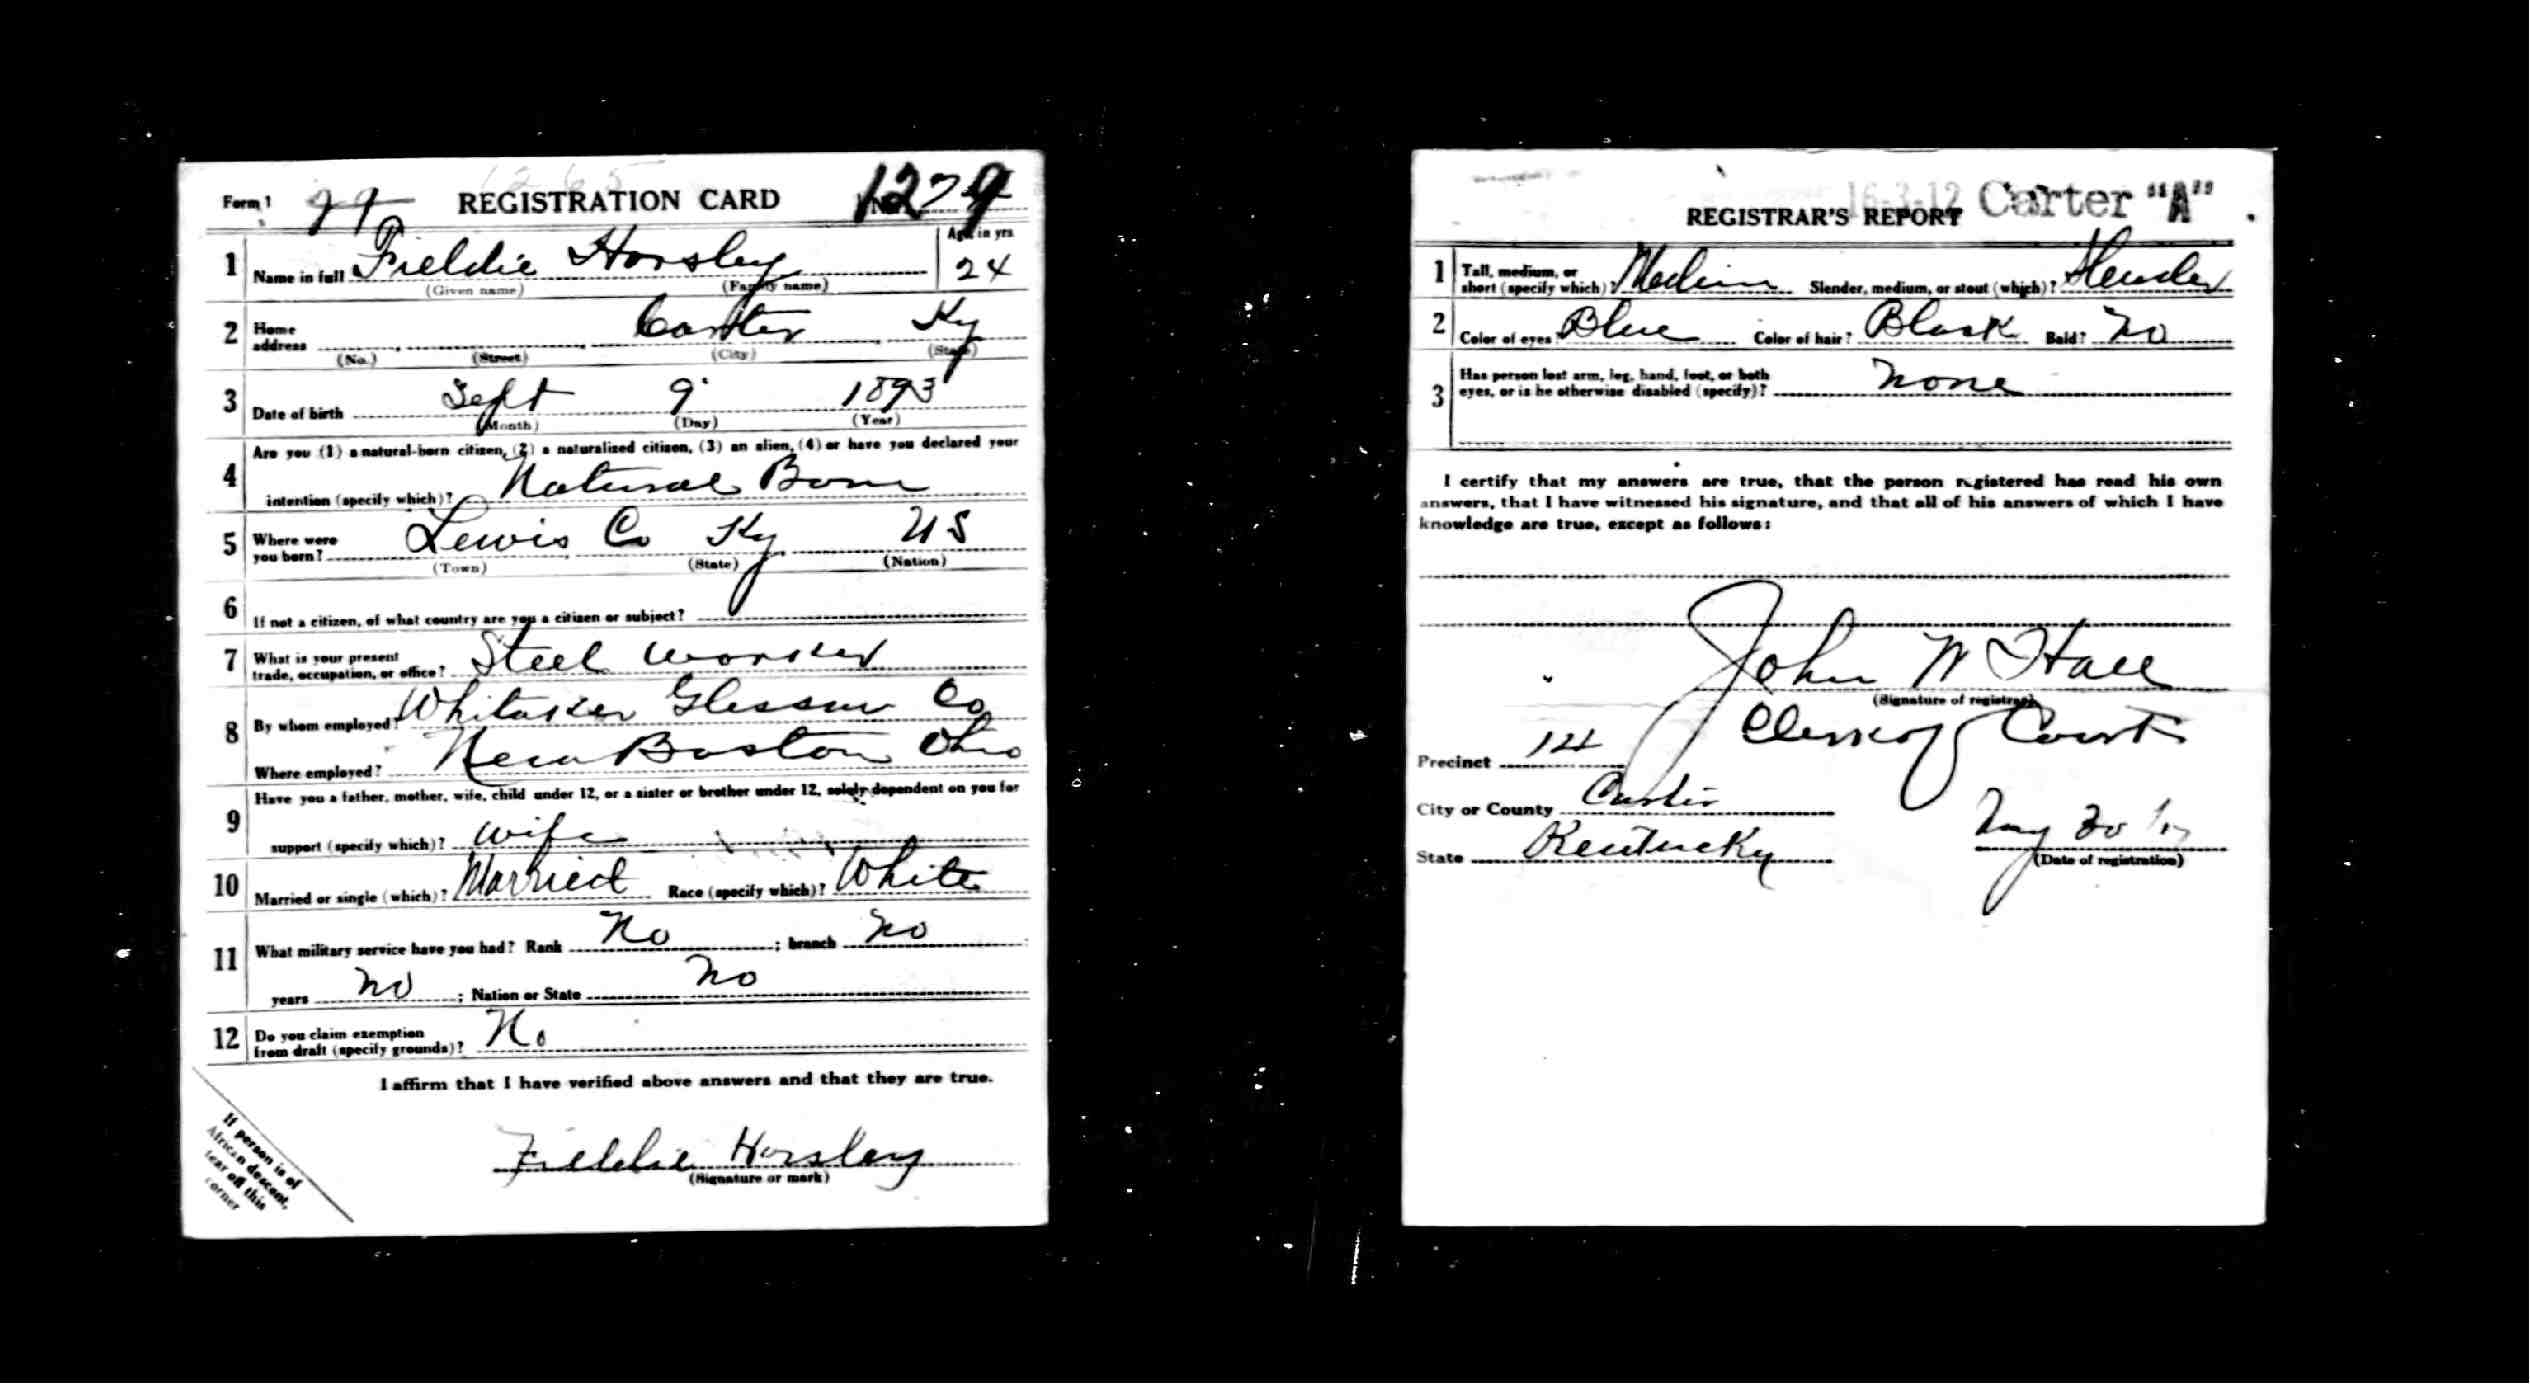 Form 1 REGISTRATION CARD 1279
1265
Age in yrs
1 Name in full Fieldie Horsley 24
(Given name) (Family name)
2 Home address Carter Ky
(No.) (Street) (City) (State)
3 Date of birth Sept 9 1893
(Month) (Day) (Year)
4 Are you (1) a natural-born citizen, (2) a naturalized citizen, (3) an alien, (4) or have you declared your
intention (specify which)? Natural Born
5 Where were you born? Lewis Co Ky US
(Town) (State) (Nation)
6 If not a citizen, of what country are you a citizen or subject?
7 What is your present
trade, occupation, or office? Steel worker
8 By whom employed? Whitaker Glessner Co
Where employed? New Boston Ohio
9 Have you a father, mother, wife, child under 12, or a sister or brother under 12, solely dependent on you for
support (specify which)? wife
10 Married or single (which)? Married Race (specify which)? White
11 What military service have you had? Rank No ; branch No
years No ; Nation or State No
12 Do you claim exemption
from draft (specify grounds)? No
I affirm that I have verified above answers and that they are true.
Fieldie Horsley
(Signature or mark)
If person is of
African descent,
tear off this
corner
16-3-12 Carter "A"
REGISTRAR'S REPORT
1 Tall, medium, or
short (specify which)? Medium Slender, medium, or stout (which)? Slender
2 Color of eyes Blue Color of hair? Black Bald? No
3 Has person lost arm, leg, hand, foot, or both
eyes, or is he otherwise disabled (specify)? none
I certify that my answers are true, that the person registered has read his own
answers, that I have witnessed his signature, and that all of his answers of which I have
knowledge are true, except as follows:
John W Hall
(Signature of registrar)
Clerk of Court
Precinct
City or County Carter
State Kentucky
(Date of registration)